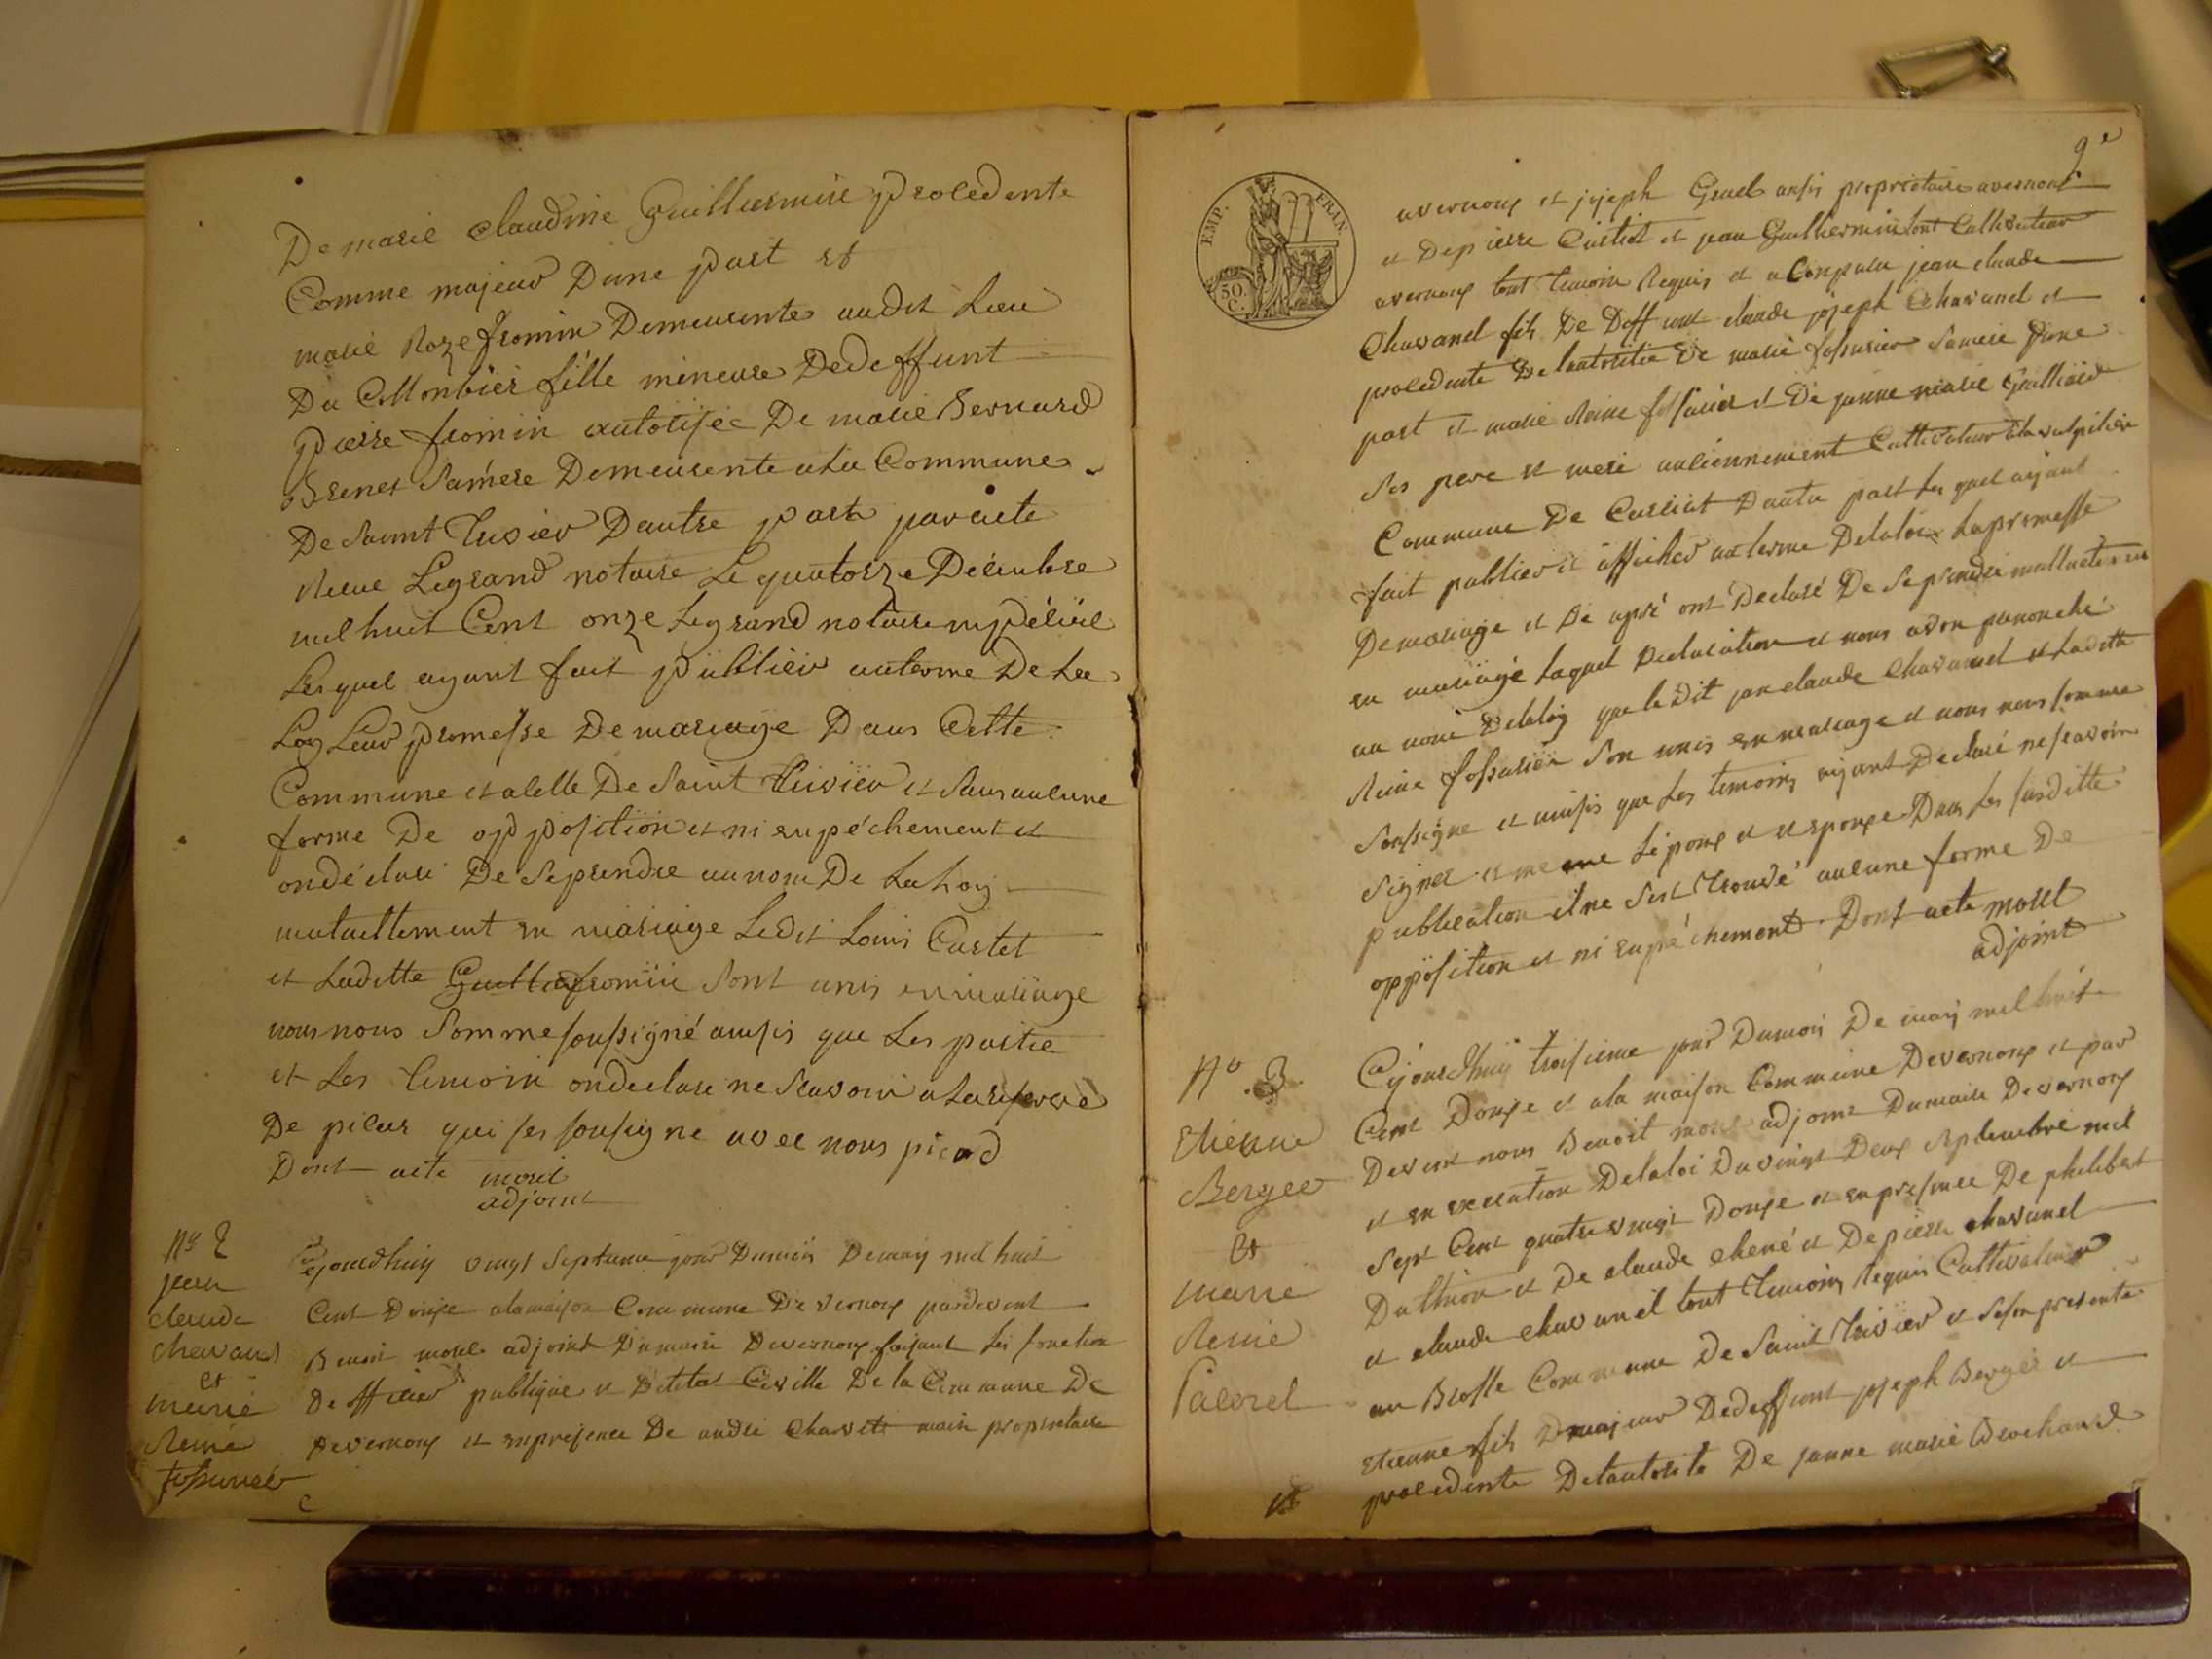 De marie claudine Guillermin procedente
Comme majeur Dune part et
marie Roze fromin Demeurente audit Lieu
Du Collonbier fille mineure Dedeffunt
pierre fromin autorisée De marie Bernard
Brenet Samère Demeurente ala Commune
De Saint Trivier Dautre part par acte
Recue Legrand notaire Le quatorze Décembre
mil huit Cent onze Legrand notaire impérial
Lesquel ayant fait publier auterme De La
Loy Leur promesse De mariage Dans Cette
Commune et alelle De Saint Trivier et Sans aulune
forme De opposition et ni enpéchement et
ondéclaré De Seprendre aunom De La Loy
mutuellement en mariage Ledit Louis Castel
et Laditte fromin Sont unis en mariage
nous nous Somme soussigné ausis que Les partie
et Les temoin ondeclare ne Scavoir a Lareserve
De qui ses sousigne avec nous picard
Dont acte morel
adjoint
No 2
jean
claude
chavanel
et
marie
Reine
fossurier
Cejourdhuy vingt Septieme jour Dumois De may mil huit
Cent Douze alamaison Commune De vernoux pardevent
Benoit morel adjoint Dumaire Devernoux faisant Les fonction
De officier publique et Detat Civille De la Commune De
Devernoux et enpresence De andré main propriétaire
9e
EMP. FRAN.
50 C.
avernoux et joseph Gruel ausis propriétaire avernoux
et Depierre et jean Guilhermin tout Cultivateur
avernoux tout temoin Requis et a Conparu jean claude
Chavanel fils De Deffunt claude joseph Chavanel et
procedente De lautoritée De marie Samere Dune
part et marie Reine fossurier et De janne marie
Ses pere et mere anciennement Cultivateur
Commune De Curciat Dautre part Les quel aiyant
fait publier et afficher auterme Delaloi Lapromesse
Demariage et De apré ont Declaré De Seprendre mutuellement
en mariage Laquel Declaration et nous avon prononcé
au nom Delaloy que le Dit jan claude Chavanel et Laditte
Reine fossurier Son unis en mariage et nous nous somme
Soussigne et ausis que Les temoins aiyant Declaré ne scavoir
Signer et meme Lépoux et Lespouze Dans Les susditte
publication il ne Sest trouvé aulune forme De
opposition et ni enpéchement. Dont acte morel
adjoint
No. 3.
Etienne
Berger
Et
marie
Reine
Pacoret
Cejourdhuy troisieme jour Dumois De may mil huit
Cent Douze et ala maison Commune Devernoux et par
Devent nous Benoit morel adjoint Dumaire Devernoux
et en execution Delaloi Du vingt Deux Septembre mil
Sept Cent quatre vingt Douze et enpresence De philibert
Duthion et De claude chené et Depierre chavanel
et claude chavanel tout temoins Requis Cultivateur
au Commune De Saint Trivier et Seson presente
Etienne fils majeur Dedeffunt joseph Berger et
procedente Delautorité De janne marie
et